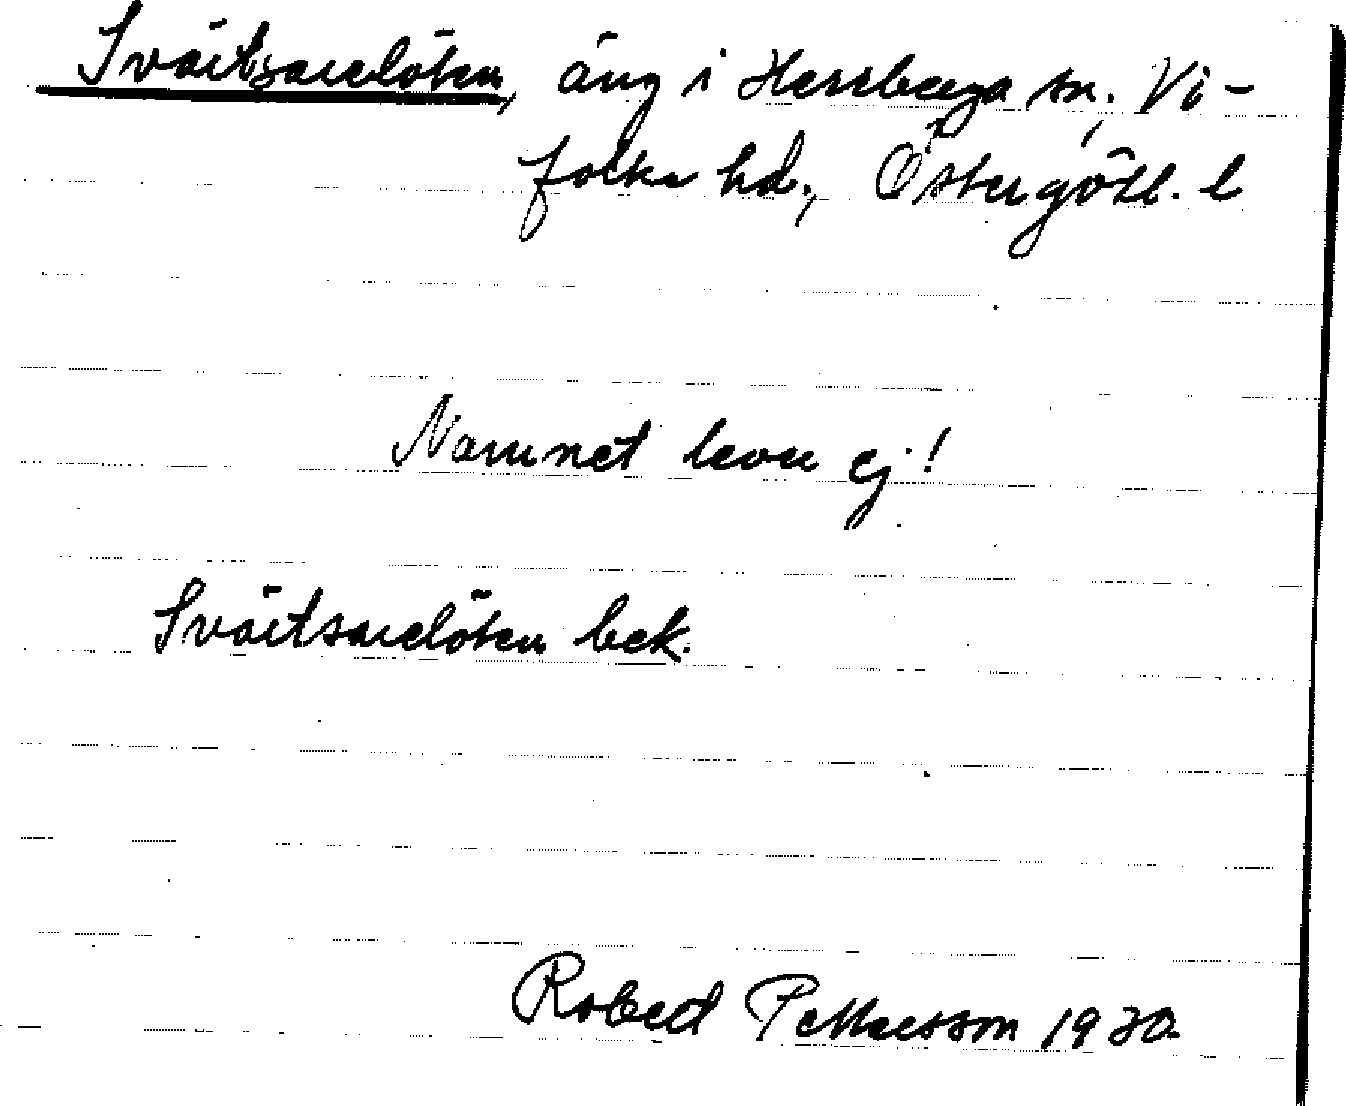 Svärtsarelöten, äng i Herrberga sn, Vi-
folka hd., Östergötl. l
Namnet lever ej!
Svärtsarelöten bek.
Robert Pettersson 1930.